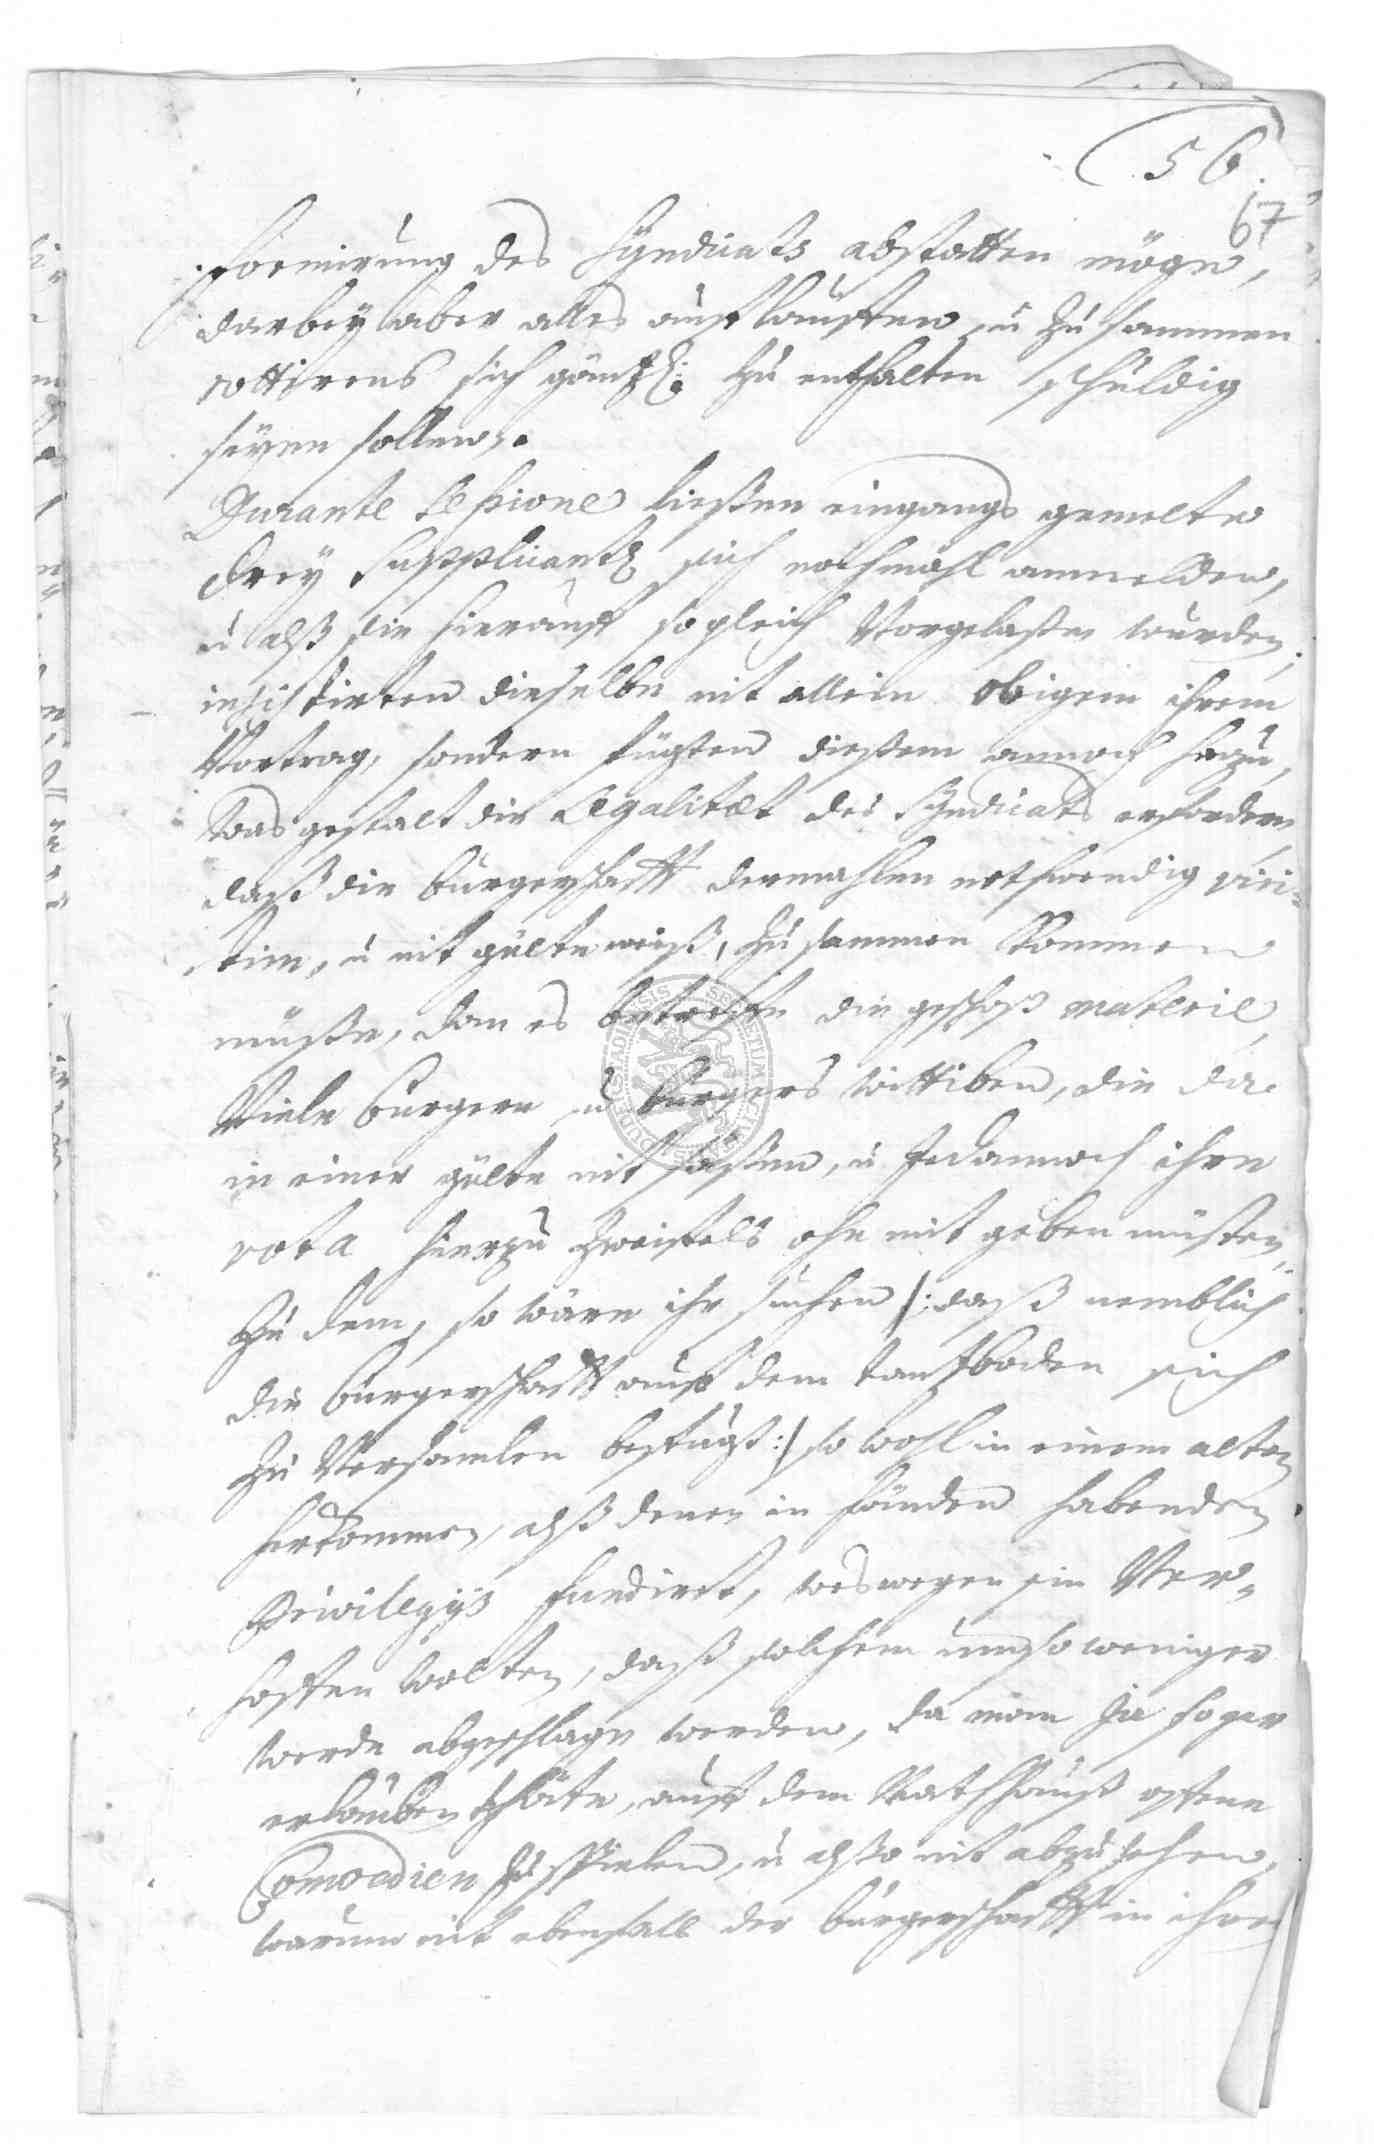 56
67
formirung des Syndicats abstatten möge,
darbey aber alles aufflauffen, u zusammen
rottirens sich gäntzl: zu enthalten schuldig
seyen sollen.
Durante Sessione liessen eingangs gemelte
drey Supplicants sich nochmahl anmelden,
u alß sie hierauff sogleich Vorgelassen wurden,
insistirten dieselbe nit allein obigem ihrem
Vortrag, sondern fügten diessem annoch hinzu,
Was gestalt die Legalitæt des Syndicats erfordere,
daß die burgerschafft dermahlen nothwendig viri-
tim, u nit gülte weiß, zusammen kommen
müsse, dan es betreffe die geschoß materie,
Viele burgere u burgers wittiben, die da
in einer gülte nit sässen, u Jedannoch ihre
rota hierzu zweifels ohn mit geben müsten,
Zu dem, so wäre ihr suchen /: daß nemblich
die burgerschafft auff dem tantzboden sich
zu Versamlen befugt :/ so wohl in einem alten
herkommen, alß denen in händen habenden
Privilegijs fundiret, weswegen sie Ver-
hoffen wolten, daß solchem umb so weniger
werde abgeschlagen werden, da man Ja sogar
erlauben thäte, auff dem Rathhauß offene
Comoedien zu spielen, u also nit abzusehen,
warum nit ebenfalls der burgerschafft in ihren